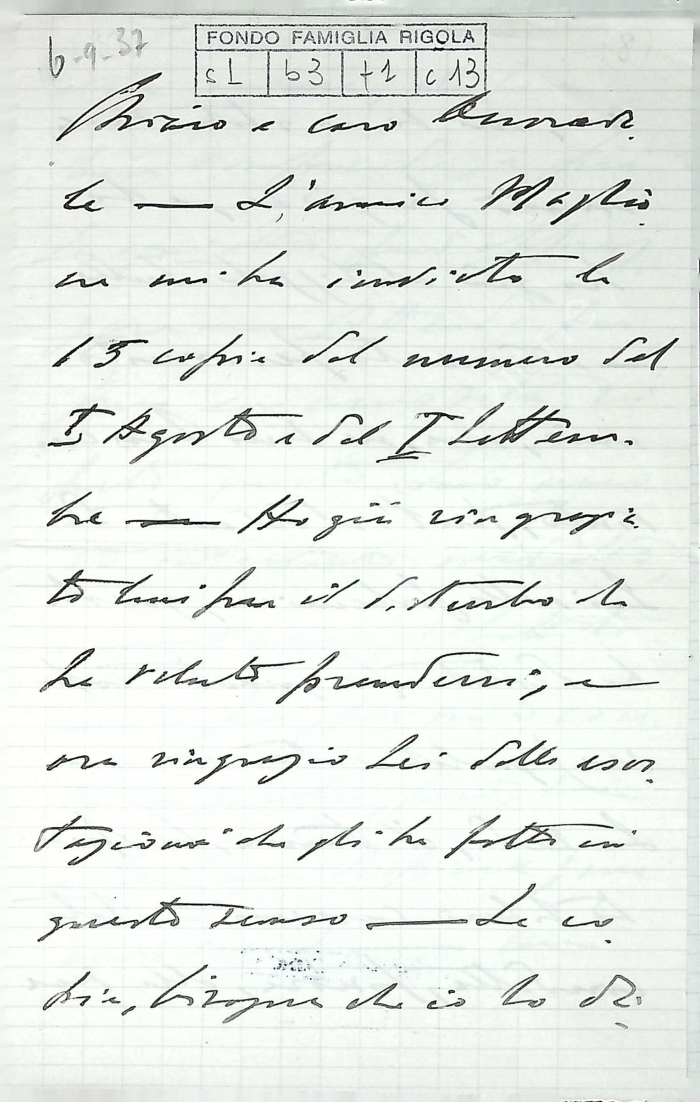 6-9-37
FONDO FAMIGLIA RIGOLA
s1 b3 f1 c13
e caro Onorevo-
le — L'amico Maglio
ne mi ha inviato le
15 copie del numero del
I Agosto e del I Settem-
bre — Ho già ringrazia-
to lui per il disturbo che
ha voluto prendersi, e
ora ringrazio Lei delle esor-
tazioni che gli ha fatto in
questo senso — Le co-
pie, bisogna che io lo di-